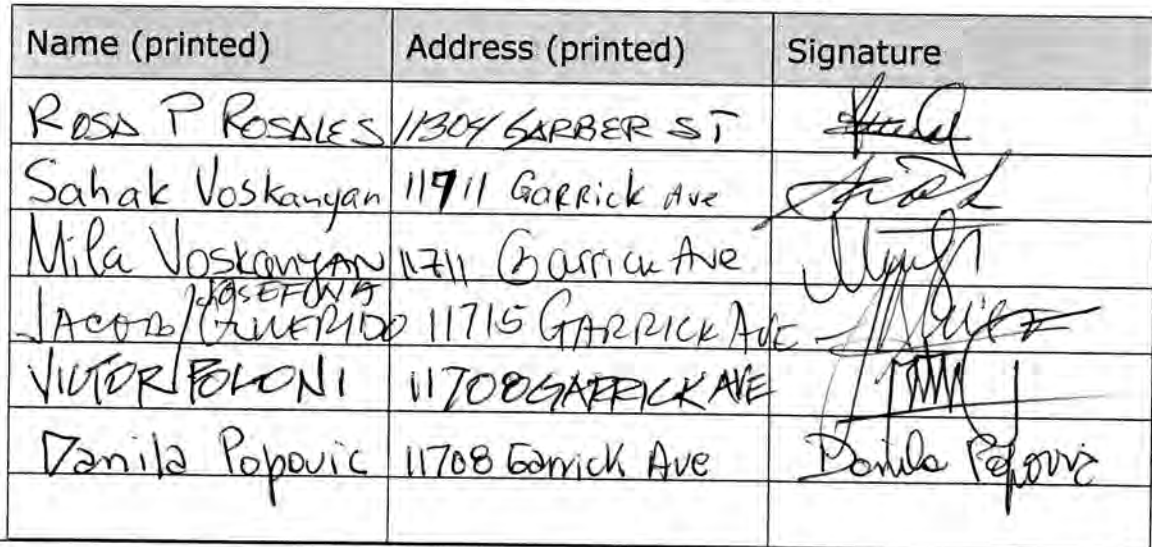 Name (printed) Address (printed) Signature
ROSA P ROSALES 11304 GARBER ST
Sahak Voskanyan 11711 GARRick Ave
Mila VOSKANYAN 11711 Garrick Ave
JOSEFINA
JACOB/QUERIDO 11715 GARRICK AVE
VICTOR POLONI 11708 GARRICK AVE
Danila Popovic 11708 Garrick Ave Danila Popovic